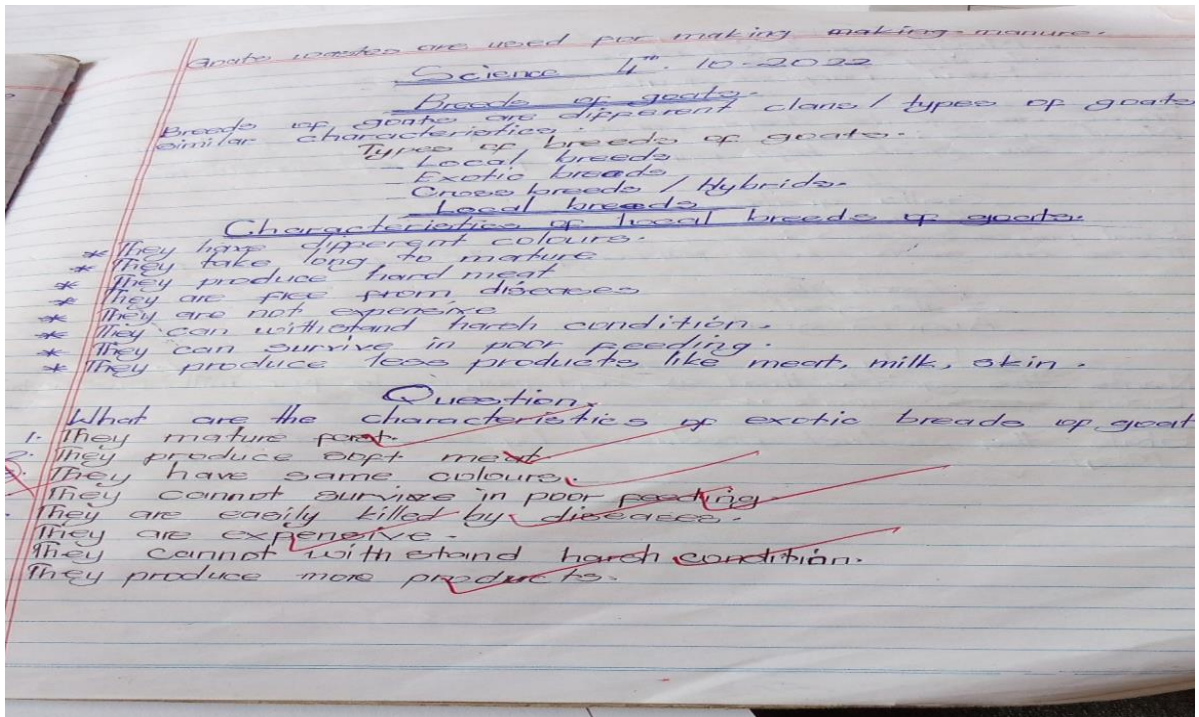 Goats wastes are used for making making manure.
Science 4th. 10-2022
Breeds of goats.
Breeds of goats are different clans / types of goats
similar characteristics.
Types of breeds of goats.
- Local breeds
- Exotic breeds
- Cross breeds / Hybrids.
Local breeds
Characteristics of local breeds of goats.
* They have different colours.
* They take long to mature
* They produce hard meat
* They are free from diseases
* They are not expensive
* They can withstand harsh condition.
* They can survive in poor feeding.
* They produce less products like meat, milk, skin.
Question.
What are the characteristics of exotic breads of goat
1. They mature fast.
2. They produce soft meat.
They have same colours.
They cannot survive in poor feeding.
They are easily killed by diseases.
They are expensive.
They cannot with stand harsh condition.
They produce more products.